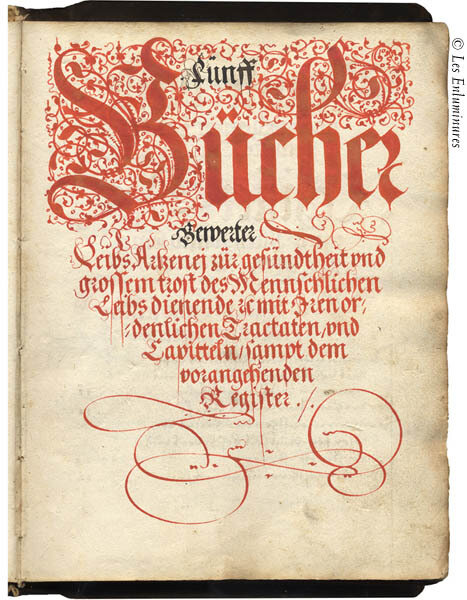 Fünff
Bücher
Bewerter
Leibs Artzenej zůr gesůndtheit vnd
grossem trost des Mennschlichen
Leibs dienende ꝛc mit Jren or,,
,,denlichen Tractaten, vnd
Capitteln / sampt dem
vorangehenden
Register ./.
© Les Enluminures